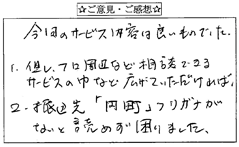 ☆ご意見・ご感想☆
今回のサービス内容は良いものでした。
1. 但し、プロ周辺など相談できる
サービスの中など広げていただければ、
2. 振込先「円町」フリガナが
ないと読めず困りました。